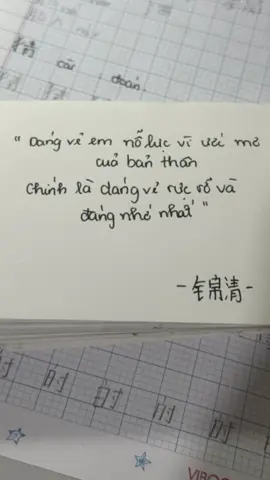 cái đoán.
" Dáng vẻ em nỗ lực vì ước mơ
của bản thân
Chính là dáng vẻ rực rỡ và
đáng nhớ nhất "
- 锦清 -
时 时 时 时 时
VIBO